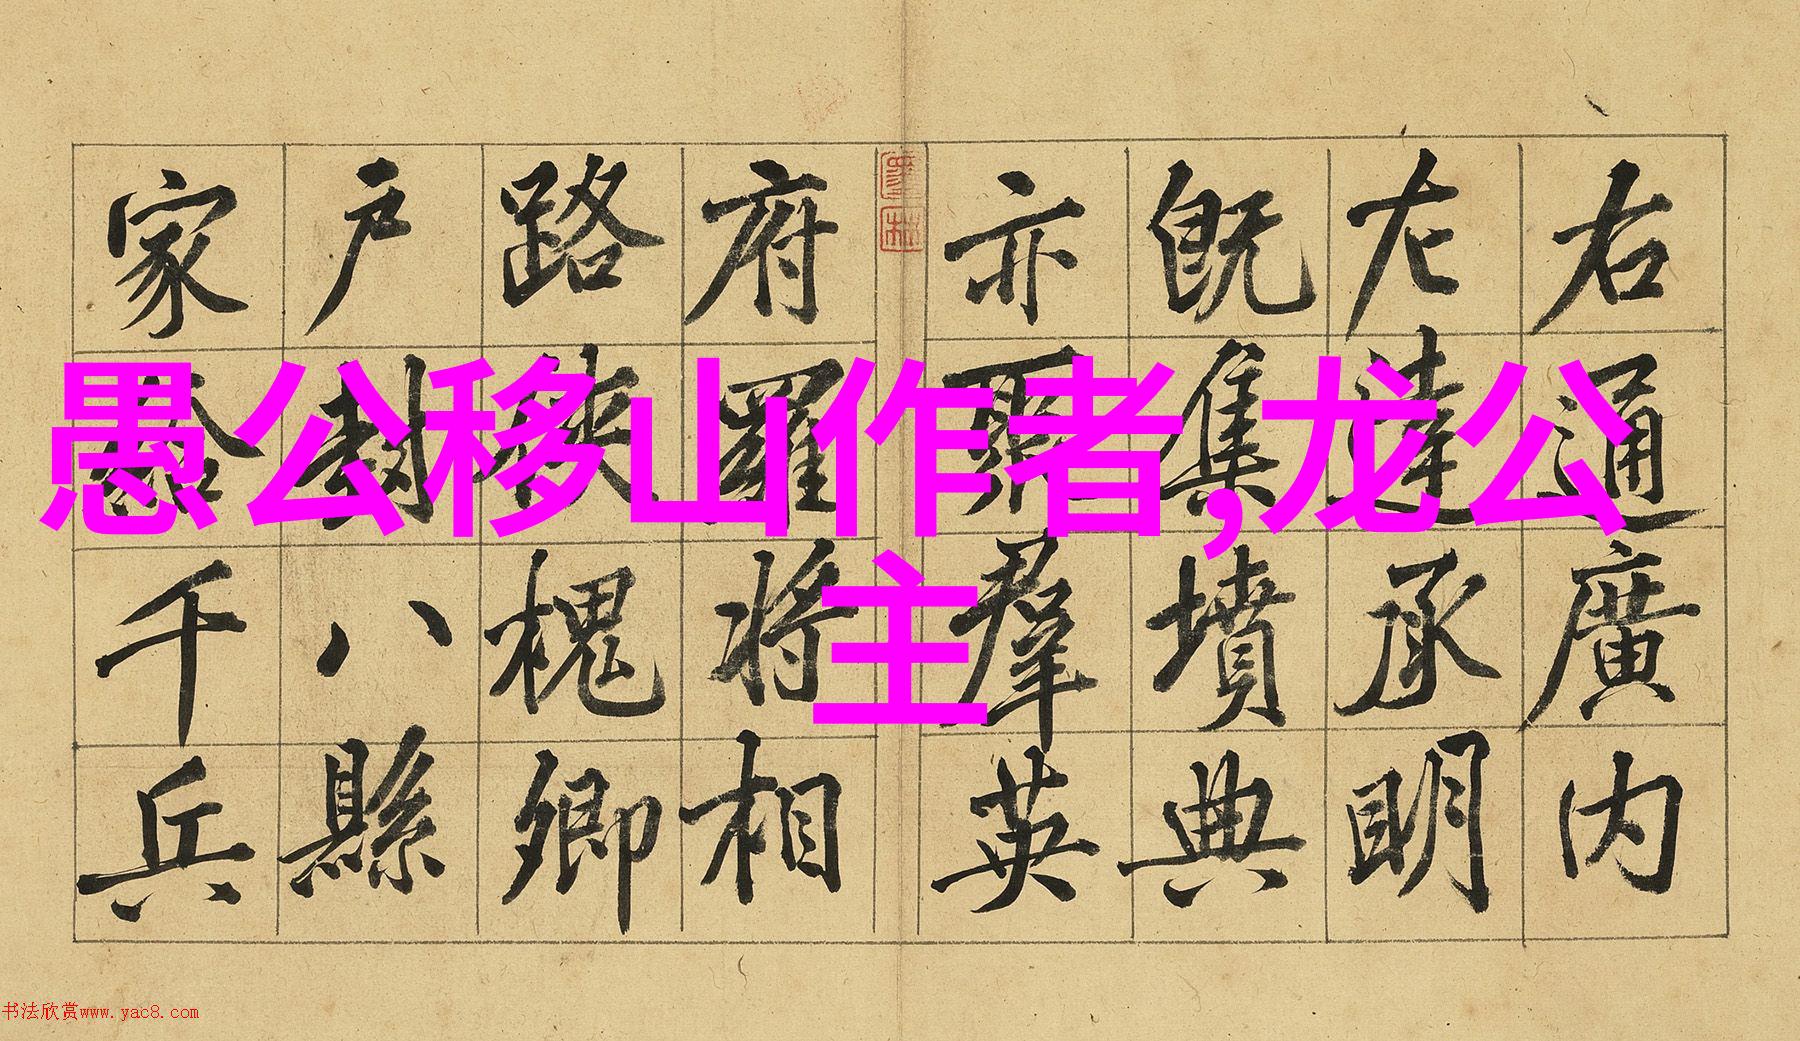 愚公移山作者,龙公
主
右通廣内
左達承明
既集墳典
亦聚羣英
府羅将相
路俠槐卿
户封八縣
家給千兵
书法欣赏www.yac8.com